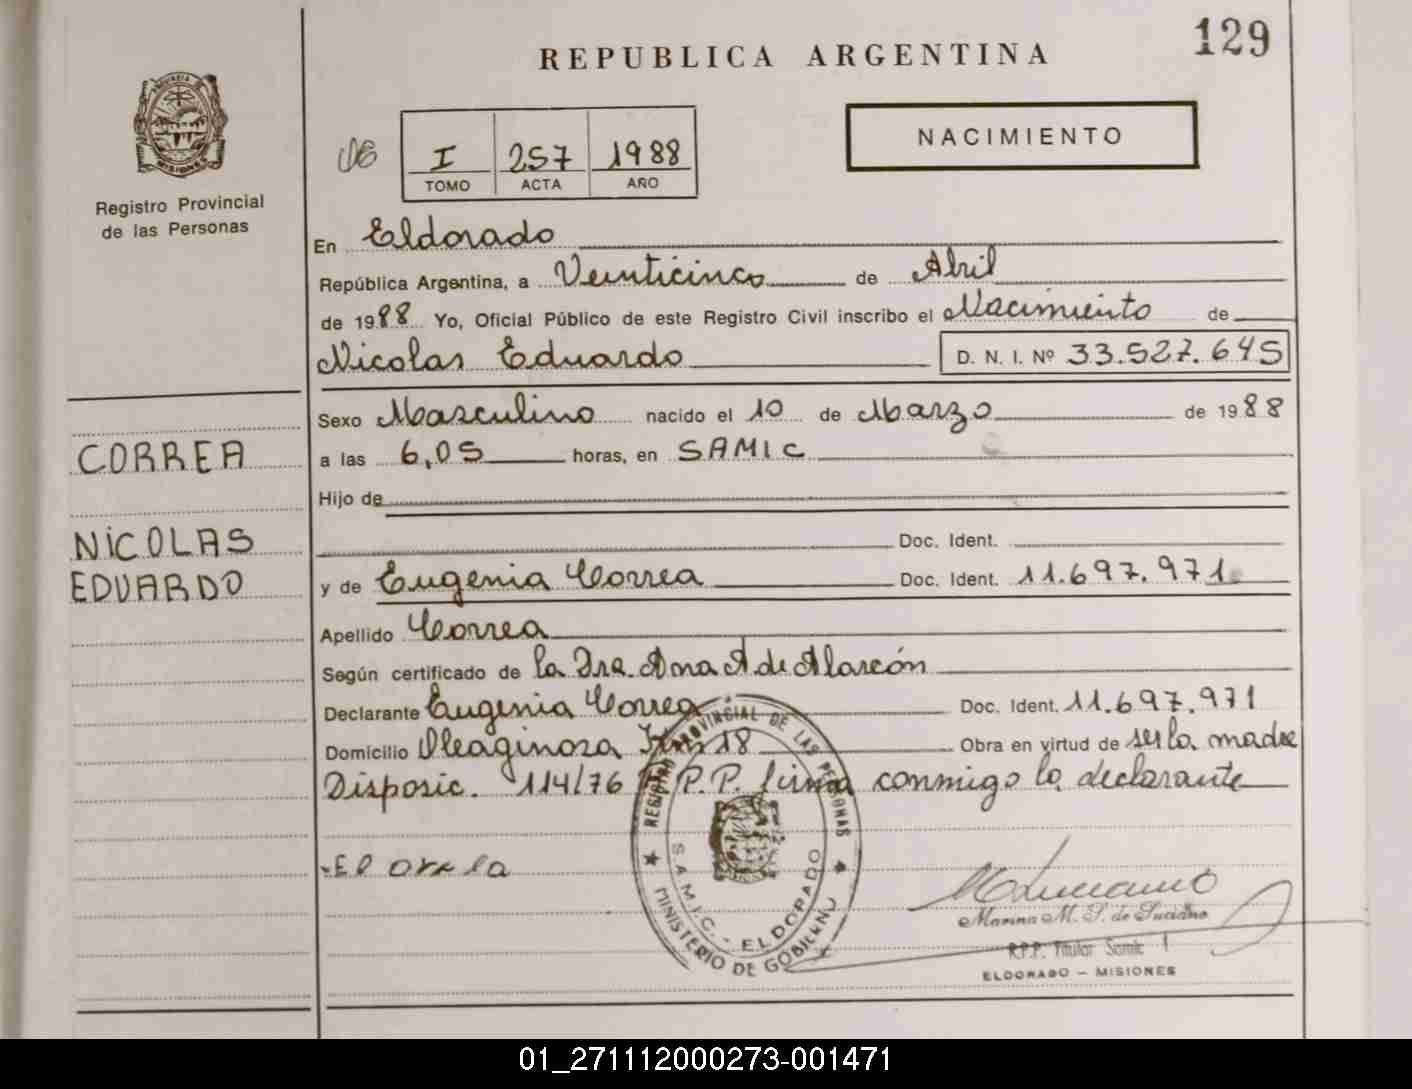 129
REPUBLICA ARGENTINA
PROVINCIA DE MISIONES
Registro Provincial
de las Personas
NACIMIENTO
I 257 1988
TOMO ACTA AÑO
En Eldorado
República Argentina, a Veinticinco de Abril
de 1988 Yo, Oficial Público de este Registro Civil inscribo el Nacimiento de
Nicolas Eduardo D. N. I. Nº 33.527.645
Sexo Masculino nacido el 10 de Marzo de 1988
CORREA
a las 6,05 horas, en SAMIC
Hijo de
NICOLAS
EDUARDO
Doc. Ident.
y de Eugenia Correa Doc. Ident. 11.697.971
Apellido Correa
Según certificado de la Dra. Ana A de Alarcón
Declarante Eugenia Correa Doc. Ident. 11.697.971
Domicilio Oleaginosa Km 18 Obra en virtud de ser la madre
Disposic. 114/76 R.P.P. firma conmigo la declarante
REGISTRO PROVINCIAL DE LAS PERSONAS
S.A.M.I.C. - ELDORADO
MINISTERIO DE GOBIERNO
Marina M. S. de Luciano
R.P.P. Titular Samic
ELDORADO - MISIONES
01_271112000273-001471